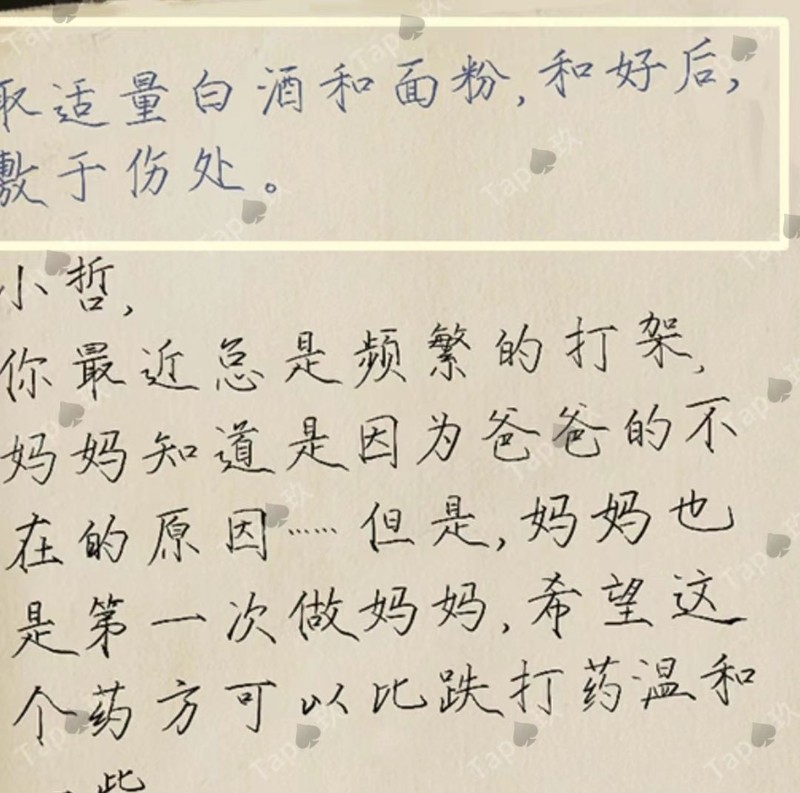 取适量白酒和面粉,和好后,
敷于伤处。
小哲,
你最近总是频繁的打架,
妈妈知道是因为爸爸的不
在的原因……但是,妈妈也
是第一次做妈妈,希望这
个药方可以比跌打药温和
一些